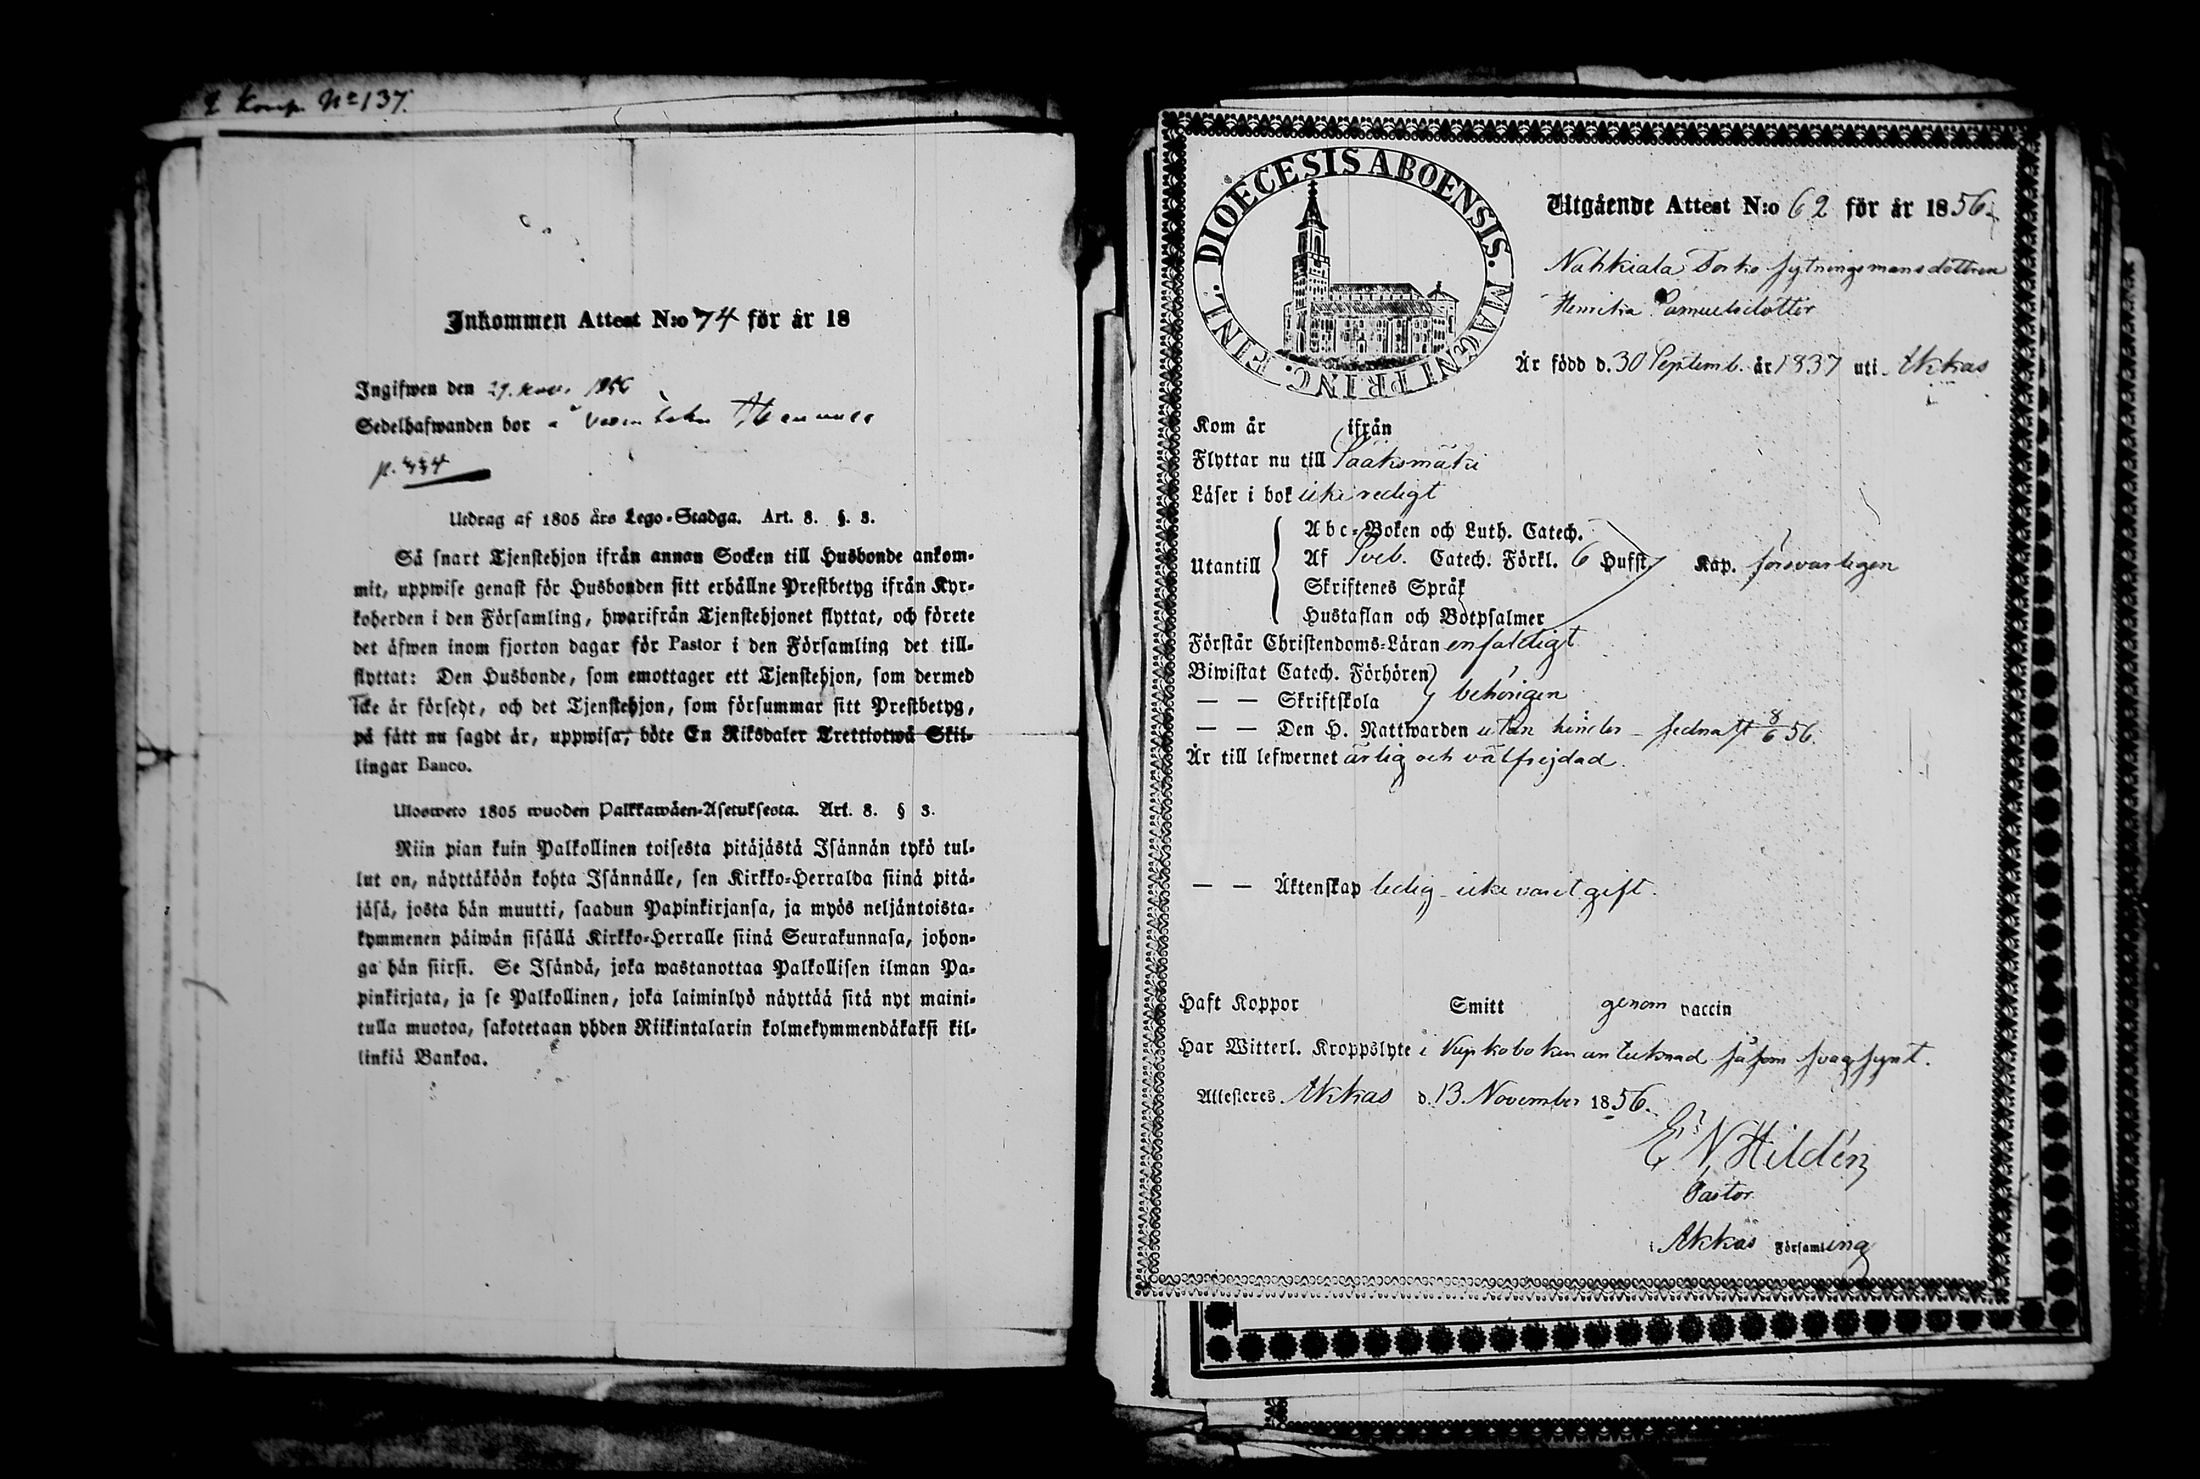 Komp. No 137.
Inkommen Attest N:o 74 för år 18
Ingifwen den 29. nov. 1856
Sedelhafwanden bor å
p. 434
Utdrag af 1805 års Lego-Stadga. Art. 8. §. 3.
Så snart Tjenstehjon ifrån annan Socken till Husbonde ankom-
mit, uppwise genast för Husbonden sitt erhållne Prestbetyg ifrån Kyr-
koherden i den Församling, hwarifrån Tjenstehjonet flyttat, och förete
det äfwen inom fjorton dagar för Pastor i den Församling det till-
flyttat: Den Husbonde, som emottager ett Tjenstehjon, som dermed
icke är försedt, och det Tjenstehjon, som försummar sitt Prestbetyg,
på sätt nu sagdt är, uppwisa, böte En Riksdaler Trettiotwå Skil-
lingar Banco.
Ulosweto 1805 wuoden Palkkawäen-Asetuksesta. Art. 8. § 3.
Niin pian kuin Palkollinen toisesta pitäjästä Isännän tykö tul-
lut on, näyttäköön kohta Isännälle, sen Kirkko-Herralda siinä pitä-
jäsä, josta hän muutti, saadun Papinkirjansa, ja myös neljäntoista-
kymmenen päiwän sisällä Kirkko-Herralle siinä Seurakunnasa, johon-
ga hän siirsi. Se Isändä, joka wastanottaa Palkollisen ilman Pa-
pinkirjata, ja se Palkollinen, joka laiminlyö näyttää sitä nyt maini-
tulla muotoa, sakotetaan yhden Riikintalarin kolmekymmendäkaksi kil-
linkiä Bankoa.
DIOECESIS ABOENSIS. MAGNI PRINC. FINL.
Utgående Attest N:o 62 för år 1856.
Nahkiala Torko sytningsmansdottren
Henrika Samuelsdotter
Är född d. 30 Septemb. år 1837 uti Akkas
Kom år ifrån
Flyttar nu till Sääksmäki
Läser i bok icke redigt
Abc-Boken och Luth. Catech.
Utantill Af Sveb. Catech. Förkl. 6 Hufst. Kap. försvarligen
Skriftenes Språk
Hustaflan och Botpsalmer
Förstår Christendoms-Läran enfaldigt
Biwistat Catech. Förhören
— — Skriftskola behörigen
— — Den H. Nattwarden utan hinder – sednast 8/6 56.
Är till lefwernet ärlig och välfrejdad.
— — Äktenskap ledig – icke varit gift.
Haft Koppor Smitt genom vaccin
Har Witterl. Kroppslyte i Kyrkoboken antecknad såsom svagsynt.
Attesteres Akkas d. 13 November 1856.
E N Hildén
Pastor
i Akkas Församling